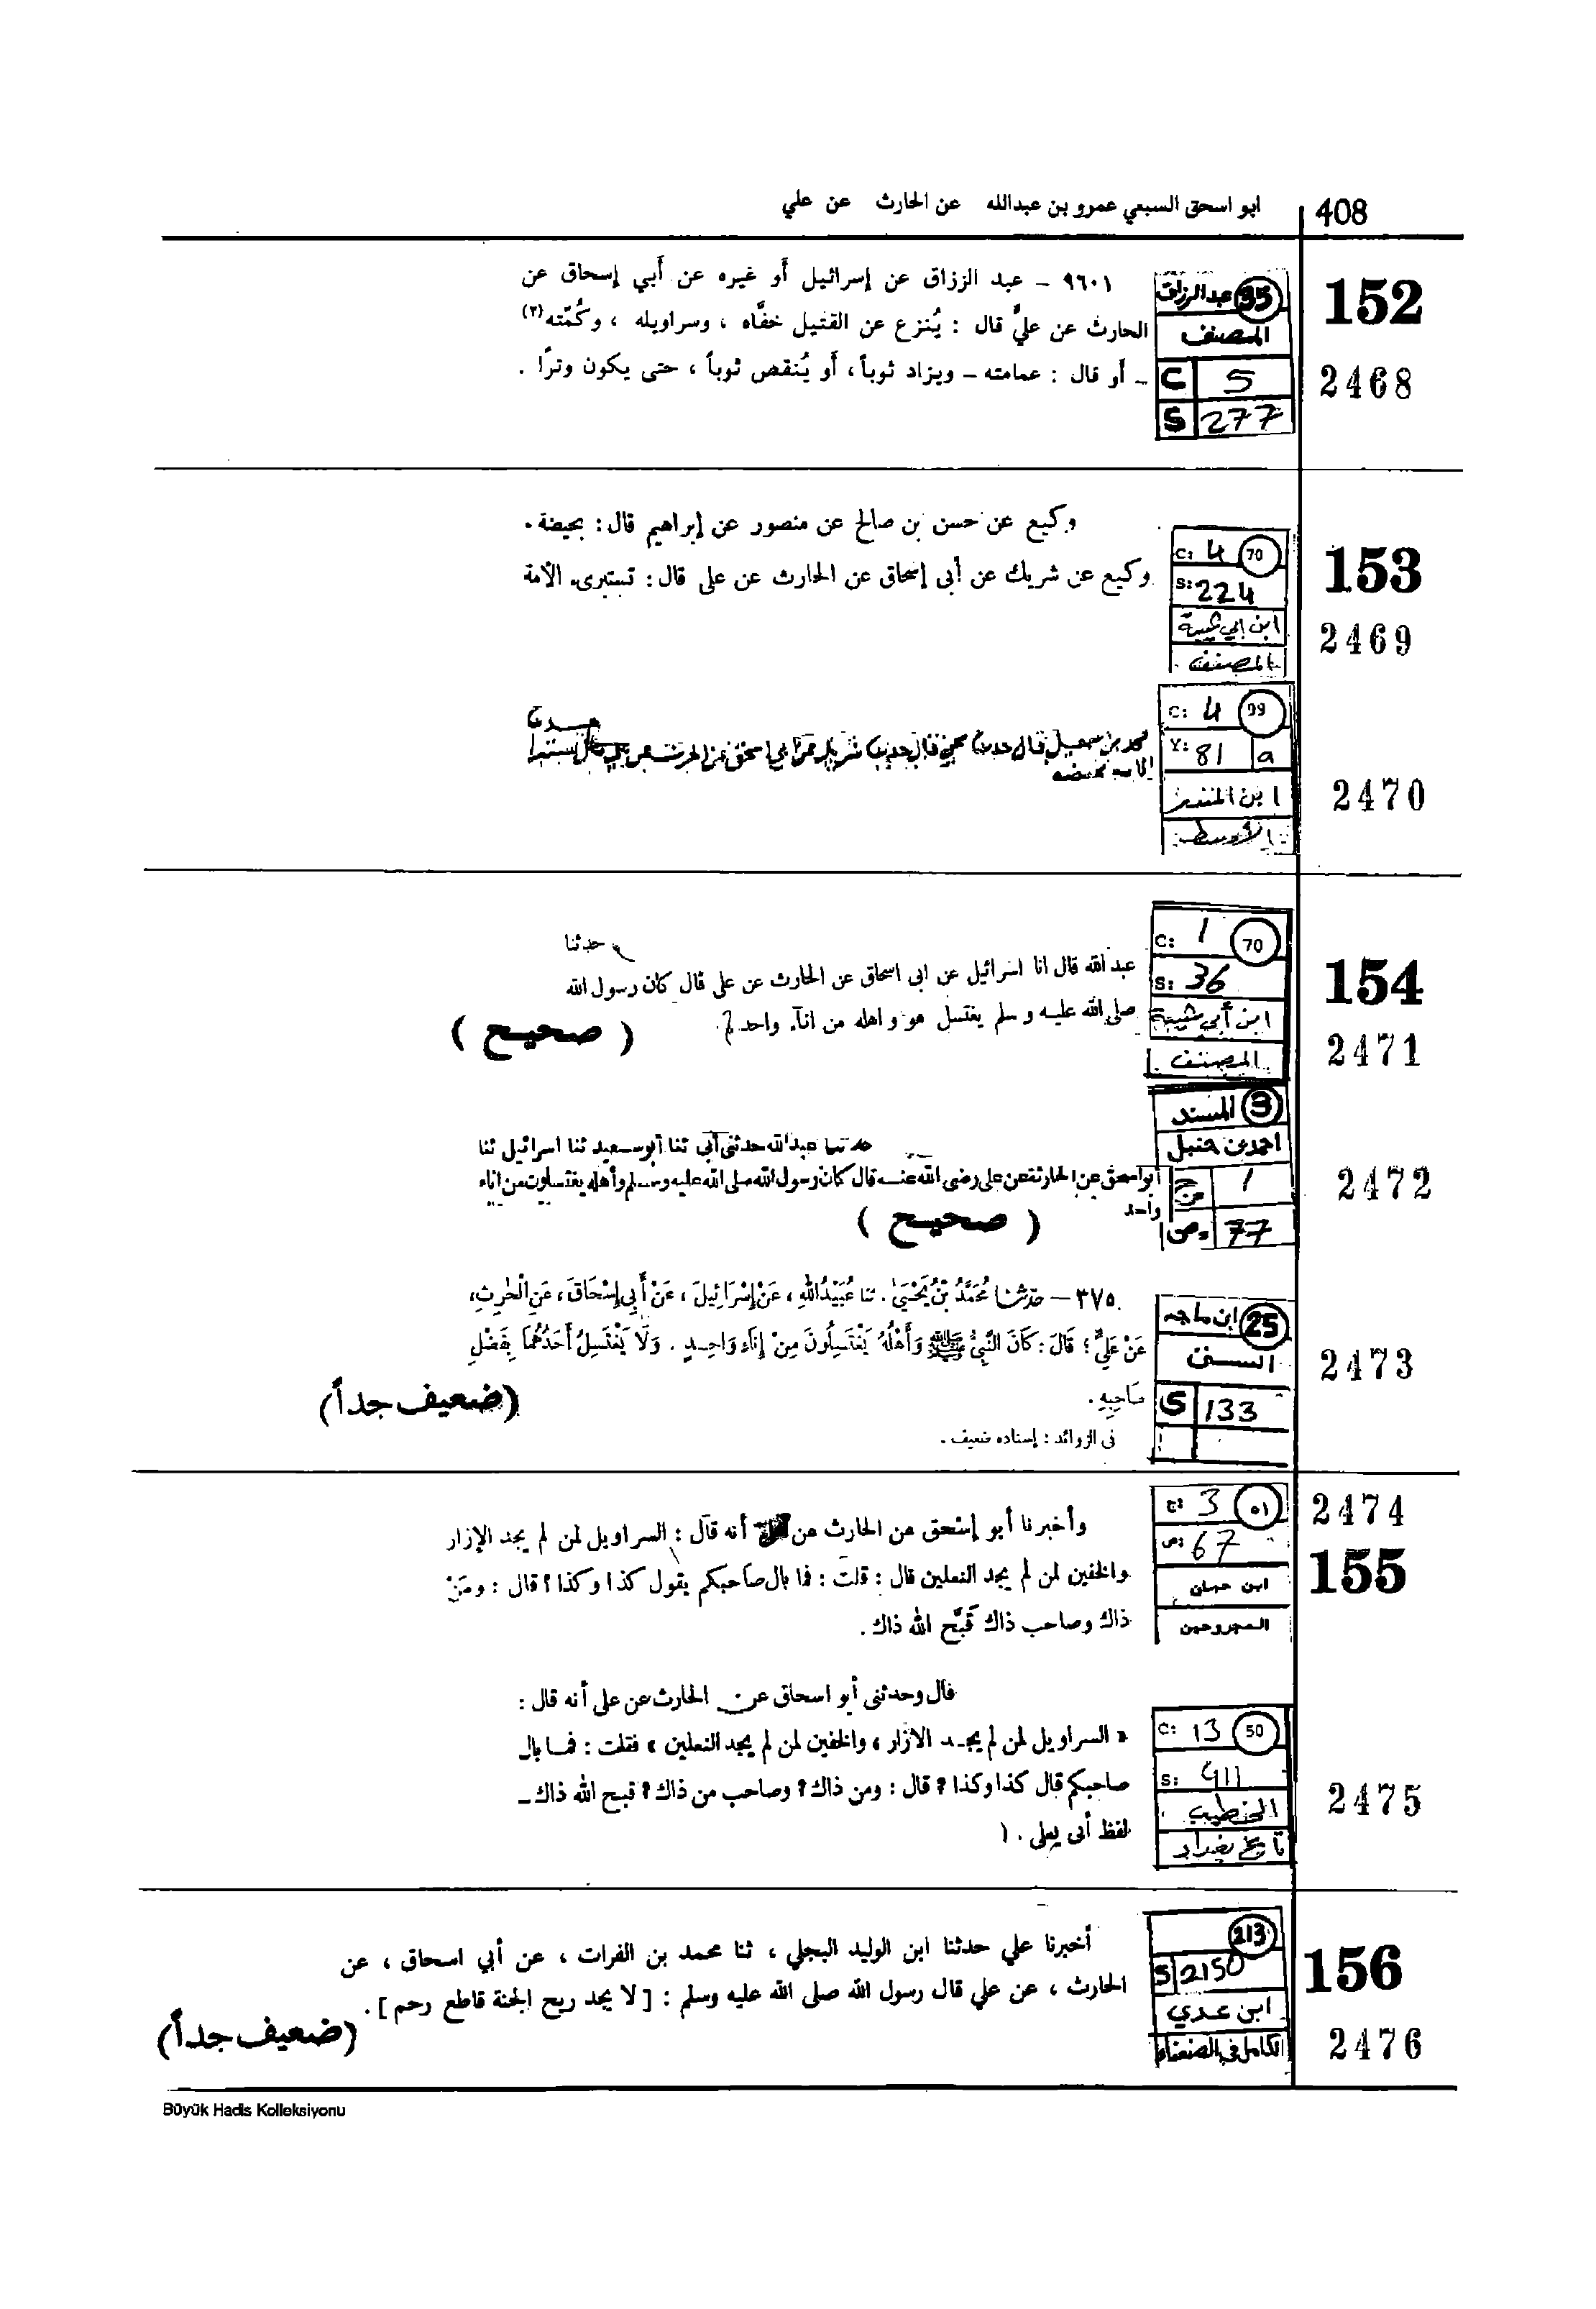 408
ابو اسحق السبعي عمرو بن عبدالله عن الحارث عن علي
152
2468
عبدالرزاق 95
المصنف
C 5
S 277
٩٦٠١ – عبد الرزاق عن إسرائيل أو غيره عن أبي إسحاق عن
الحارث عن عليّ قال : يُنزع عن القتيل خفّاه ، وسراويله ، وكُمّته(٢)
– أو قال : عمامته – ويزاد ثوباً ، أو يُنقص ثوباً ، حتى يكون وترًا .
153
2469
C: 4 70
S: 224
ابن ابي شيبة
المصنف
وكيع عن حسن بن صالح عن منصور عن إبراهيم قال : بحيضة .
وكيع عن شريك عن أبى إسحاق عن الحارث عن على قال : تستبرىء الأمة
2470
C: 4 99
Y: 81 a
ابن المنذر
الأوسط
محمد بن قال قال شريك عن ابي اسحق عن الحرث عن علي قال
154
2471
C: 1 70
S: 36
ابن أبي شيبة
المصنف
حدثنا
عبد الله قال انا اسرائيل عن ابى اسحاق عن الحارث عن على قال كان رسول الله
صلى الله عليه وسلم يغتسل هو و اهله من انآء واحد
( صحيح )
2472
3 المسند
احمد بن حنبل
ج 1
ص 77
حدثنا عبدالله حدثنى أبي ثنا أبو سعيد ثنا اسرائيل ثنا
أبو اسحق عن الحارث عن على رضى الله عنه قال كان رسول الله صلى الله عليه وسلم وأهله يغتسلون من اناء
واحد
( صحيح )
2473
ابن ماجه 25
السنن
S 133
٣٧٥ – حَدَّثَنَا مُحَمَّدُ بْنُ يَحْيَىٰ . ثنا عُبَيْدُ اللهِ ، عَنْ إِسْرَائِيلَ ، عَنْ أَبِي إِسْحَاقَ ، عَنِ الْحَرِثِ ،
عَنْ عَلِيٍّ ؛ قَالَ : كَانَ النَّبِيُّ ﷺ وَأَهْلُهُ يَغْتَسِلُونَ مِنْ إِنَاءٍ وَاحِدٍ . وَلَا يَغْتَسِلُ أَحَدُهُمَا بِفَضْلِ
صَاحِبِهِ .
(ضعيف جداً)
فى الزوائد : إسناده ضعيف .
2474
155
ج: 3 ٥١
ص: 67
ابن حبان
المجروحين
وأخبرنا أبو إسحق عن الحارث عن أنه قال : السراويل لمن لم يجد الإزار
والخفين لمن لم يجد النعلين قال : قلت : فما بال صاحبكم يقول كذا وكذا ؟ قال : ومَنْ
ذاك وصاحب ذاك قبَّح الله ذاك .
2475
C: 13 50
S: 411
الخطيب
تاريخ بغداد
قال وحدثنى أبو اسحاق عن الحارث عن على أنه قال :
« السراويل لمن لم يجد الازار ، والخفين لمن لم يجد النعلين » فقلت : فما بال
صاحبكم قال كذا وكذا ؟ قال : ومن ذاك ؟ وصاحب من ذاك ؟ قبح الله ذاك –
لفظ أبى يعلى . (
156
2476
213
S 2150
ابن عدي
الكامل في الضعفاء
أخبرنا علي حدثنا ابن الوليد البجلي ، ثنا محمد بن الفرات ، عن أبي اسحاق ، عن
الحارث ، عن علي قال رسول الله صلى الله عليه وسلم : [ لا يجد ريح الجنة قاطع رحم ] .
(ضعيف جداً)
Büyük Hadis Kolleksiyonu